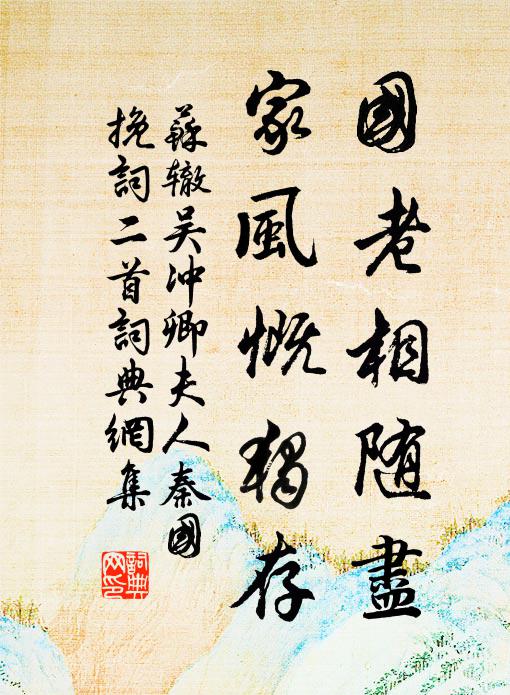 國老相随盡
家風慨獨存
蘇辙吴冲卿夫人秦國
挽詞二首詞典網集
詞典网印